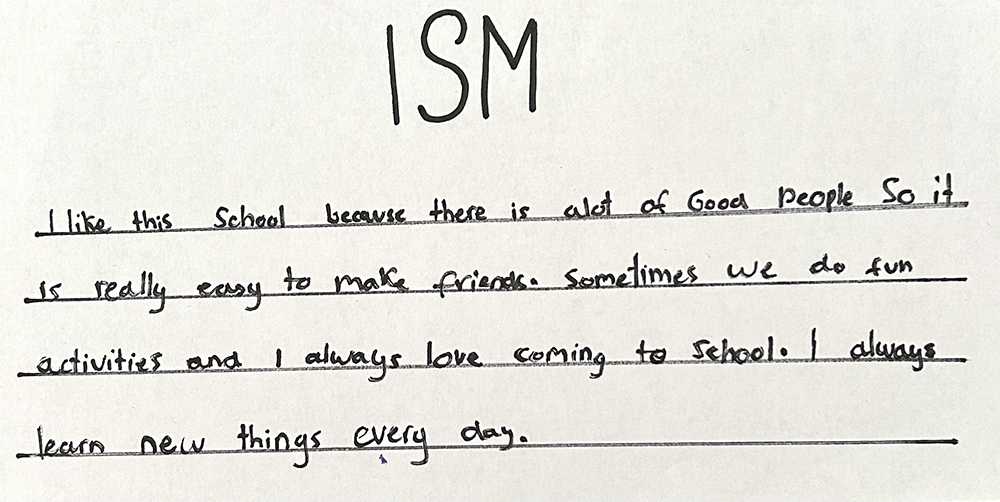 ISM
I like this School because there is alot of Good People So it
is really easy to make friends. Sometimes we do fun
activities and I always love coming to School. I always
learn new things every day.